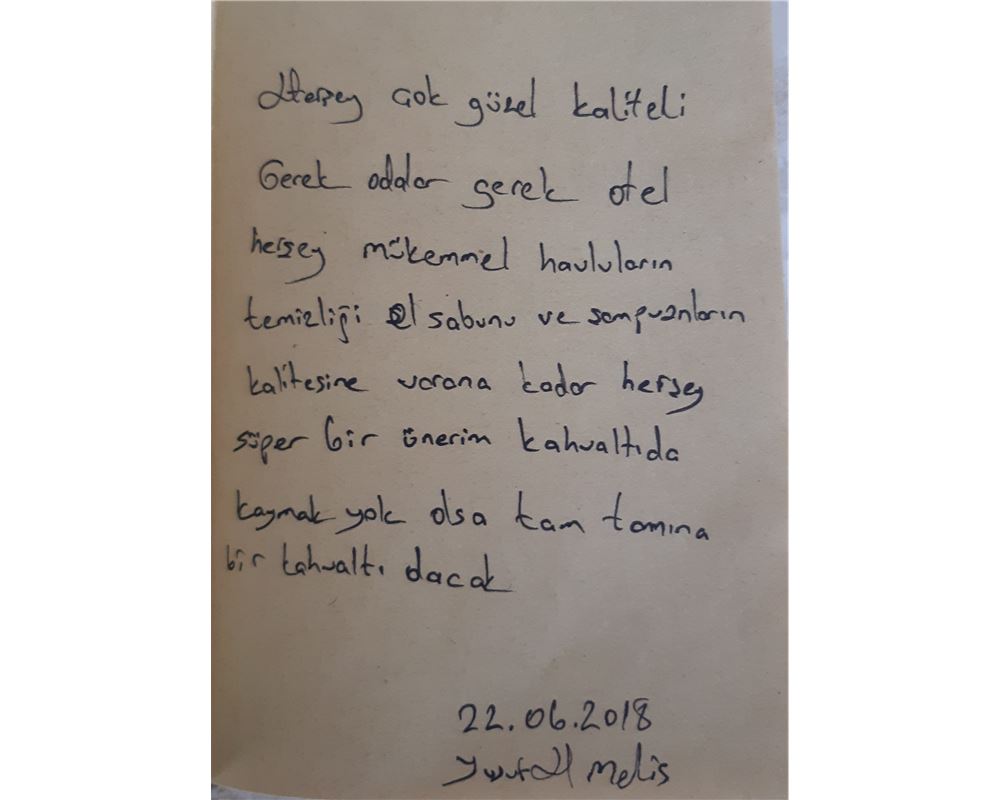 Herşey çok güzel kaliteli
Gerek odalar gerek otel
herşey mükemmel havluların
temizliği el sabunu ve şampuanların
kalitesine varana kadar herşey
süper bir önerim kahvaltıda
kaymak yok olsa tam tamına
bir kahvaltı olacak
22.06.2018
Melis